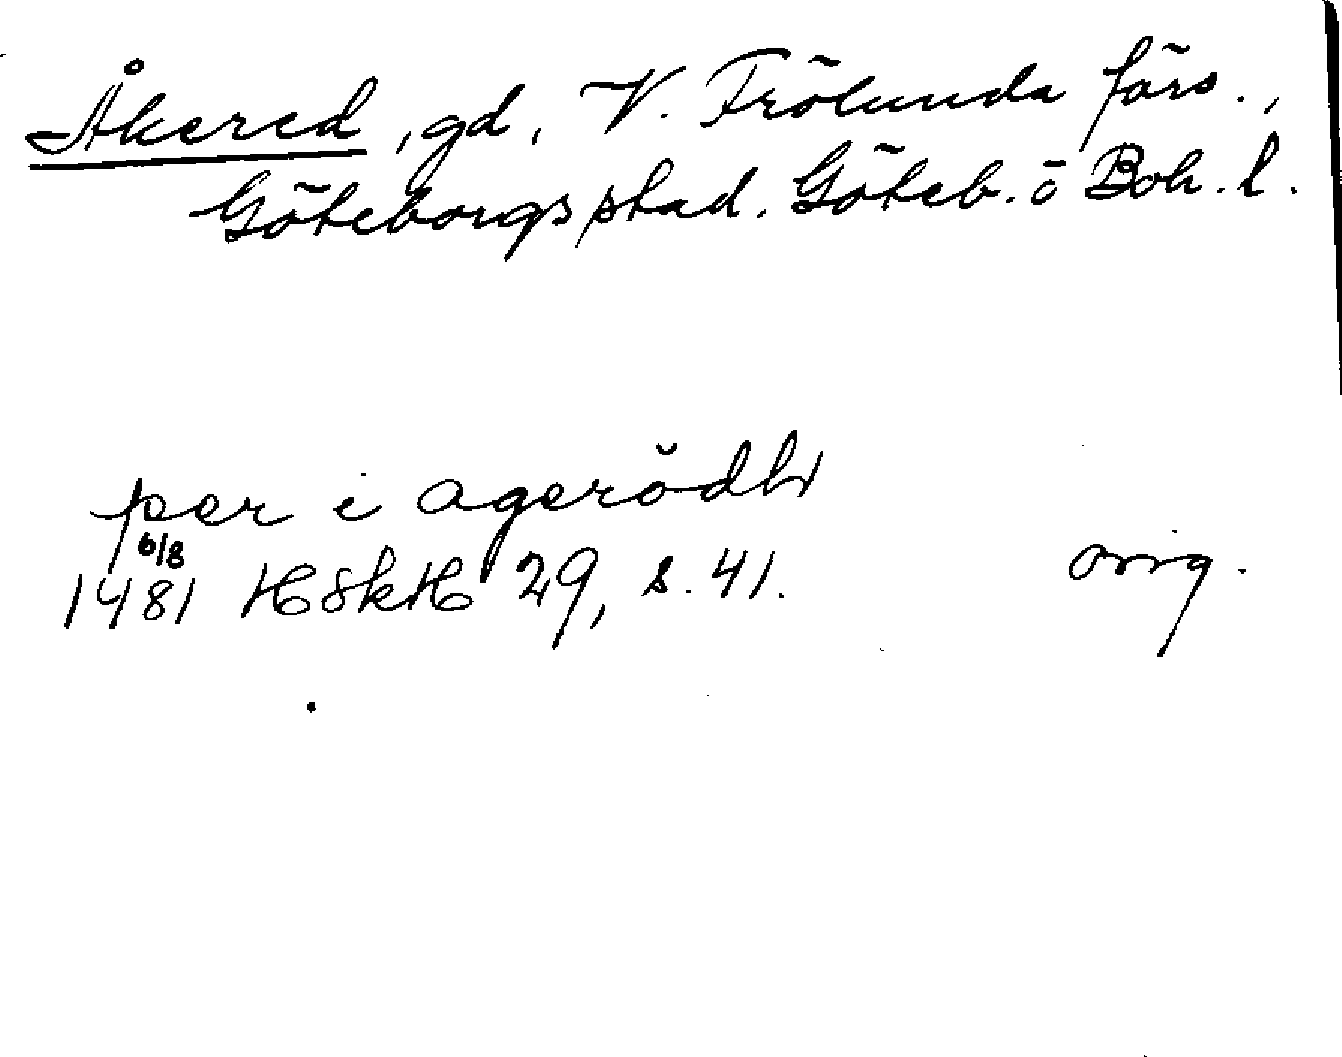 Åkered, gd, V. Frölunda förs.,
Göteborgs stad. Göteb. o Boh. l.
per i agerödh
6/8
1481 HSkH 29, s. 41. orig.